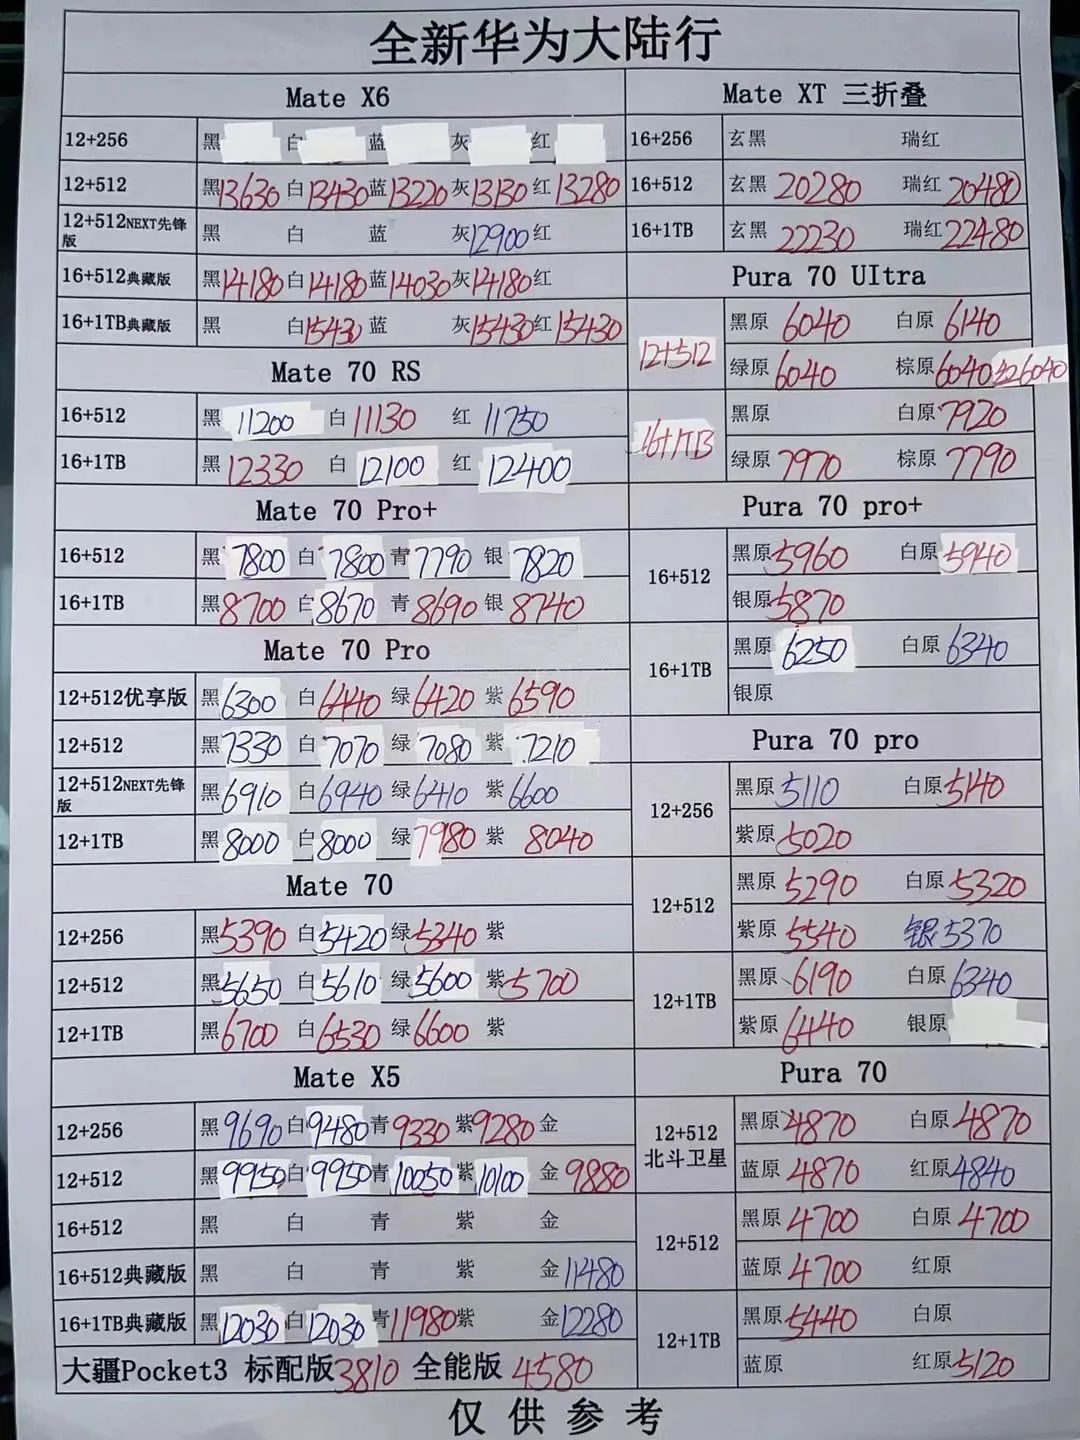 全新华为大陆行
Mate X6
12+256 黑 白 蓝 灰 红
12+512 黑13630 白13430 蓝13220 灰13130 红13280
12+512NEXT先锋版 黑 白 蓝 灰12900 红
16+512典藏版 黑14180 白14180 蓝14030 灰14180 红
16+1TB典藏版 黑 白15430 蓝 灰15430 红15430
Mate 70 RS
16+512 黑 11200 白 11130 红 11750
16+1TB 黑 12330 白 12100 红 12400
Mate 70 Pro+
16+512 黑 7800 白 7800 青 7790 银 7820
16+1TB 黑8700 白8670 青 8690 银 8740
Mate 70 Pro
12+512优享版 黑6300 白6440 绿6420 紫6590
12+512 黑7330 白7070 绿7080 紫7210
12+512NEXT先锋版 黑6910 白6940 绿6410 紫6600
12+1TB 黑8000 白8000 绿7980 紫 8040
Mate 70
12+256 黑5390 白5420 绿5340 紫
12+512 黑5650 白5610 绿5600 紫5700
12+1TB 黑6700 白6530 绿6600 紫
Mate X5
12+256 黑9690 白9480 青9330 紫9280 金
12+512 黑9950 白9950 青10050 紫10100 金9880
16+512 黑 白 青 紫 金
16+512典藏版 黑 白 青 紫 金11480
16+1TB典藏版 黑12030 白12030 青11980 紫 金12280
大疆Pocket3 标配版3810 全能版 4580
Mate XT 三折叠
16+256 玄黑 瑞红
16+512 玄黑 20280 瑞红 20480
16+1TB 玄黑 22230 瑞红22480
Pura 70 UItra
12+512 黑原 6040 白原 6140
绿原 6040 棕原6040 红6040
16+1TB 黑原 白原7920
绿原 7970 棕原 7790
Pura 70 pro+
16+512 黑原5960 白原5940
银原5870
16+1TB 黑原6250 白原6340
银原
Pura 70 pro
12+256 黑原5110 白原5140
紫原5020
12+512 黑原 5290 白原5320
紫原 5540 银5370
12+1TB 黑原6190 白原6340
紫原6440 银原
Pura 70
12+512 北斗卫星 黑原4870 白原4870
蓝原4870 红原4840
12+512 黑原4700 白原4700
蓝原4700 红原
12+1TB 黑原5440 白原
蓝原 红原5120
仅供参考